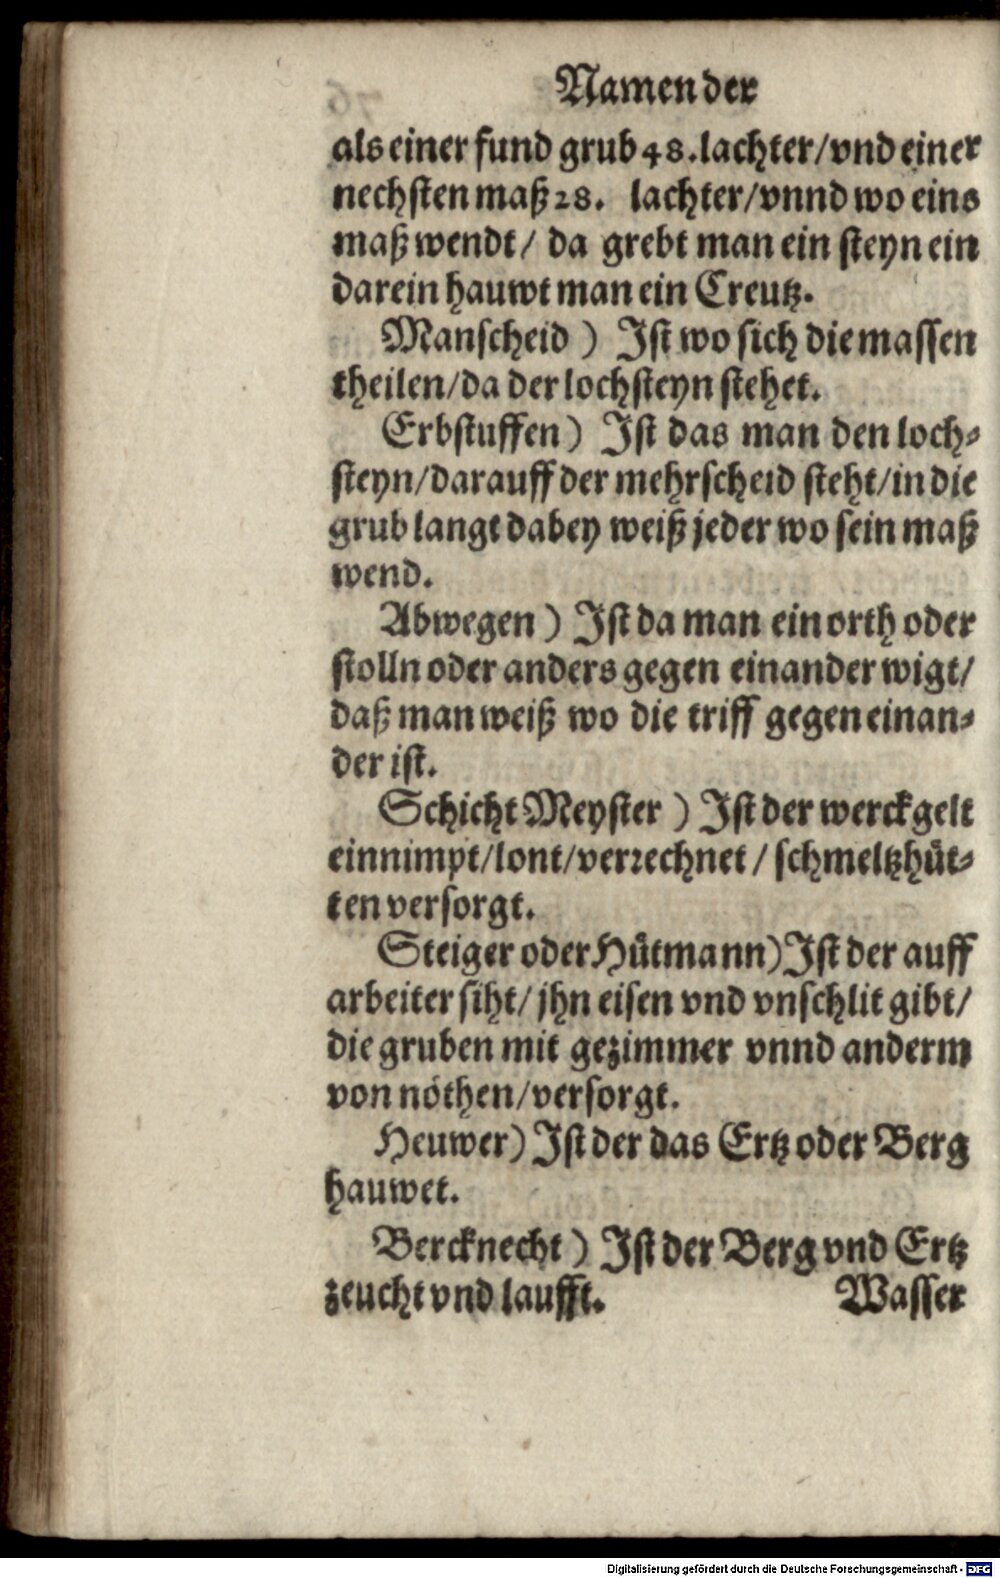 Namen der
als einer fund grub 48. lachter/ vnd einer
nechsten maß 28. lachter/ vnnd wo eins
maß wendt/ da grebt man ein steyn ein
darein hauwt man ein Creutz.
Manscheid ) Ist wo sich die massen
theilen/ da der lochsteyn stehet.
Erbstuffen ) Ist das man den loch⸗
steyn/ darauff der mehrscheid steht/ in die
grub langt dabey weiß jeder wo sein maß
wend.
Abwegen ) Ist da man ein orth oder
stolln oder anders gegen einander wigt/
daß man weiß wo die triff gegen einan⸗
der ist.
Schicht Meyster ) Ist der werckgelt
einnimpt/ lont/ verrechnet/ schmeltzhüt⸗
ten versorgt.
Steiger oder Hütmann) Ist der auff
arbeiter siht/ jhn eisen vnd vnschlit gibt/
die gruben mit gezimmer vnnd anderm
von nöthen/ versorgt.
Heuwer) Ist der das Ertz oder Berg
hauwet.
Bercknecht ) Ist der Berg vnd Ertz
zeucht vnd laufft. Wasser
Digitalisierung gefördert durch die Deutsche Forschungsgemeinschaft - DFG